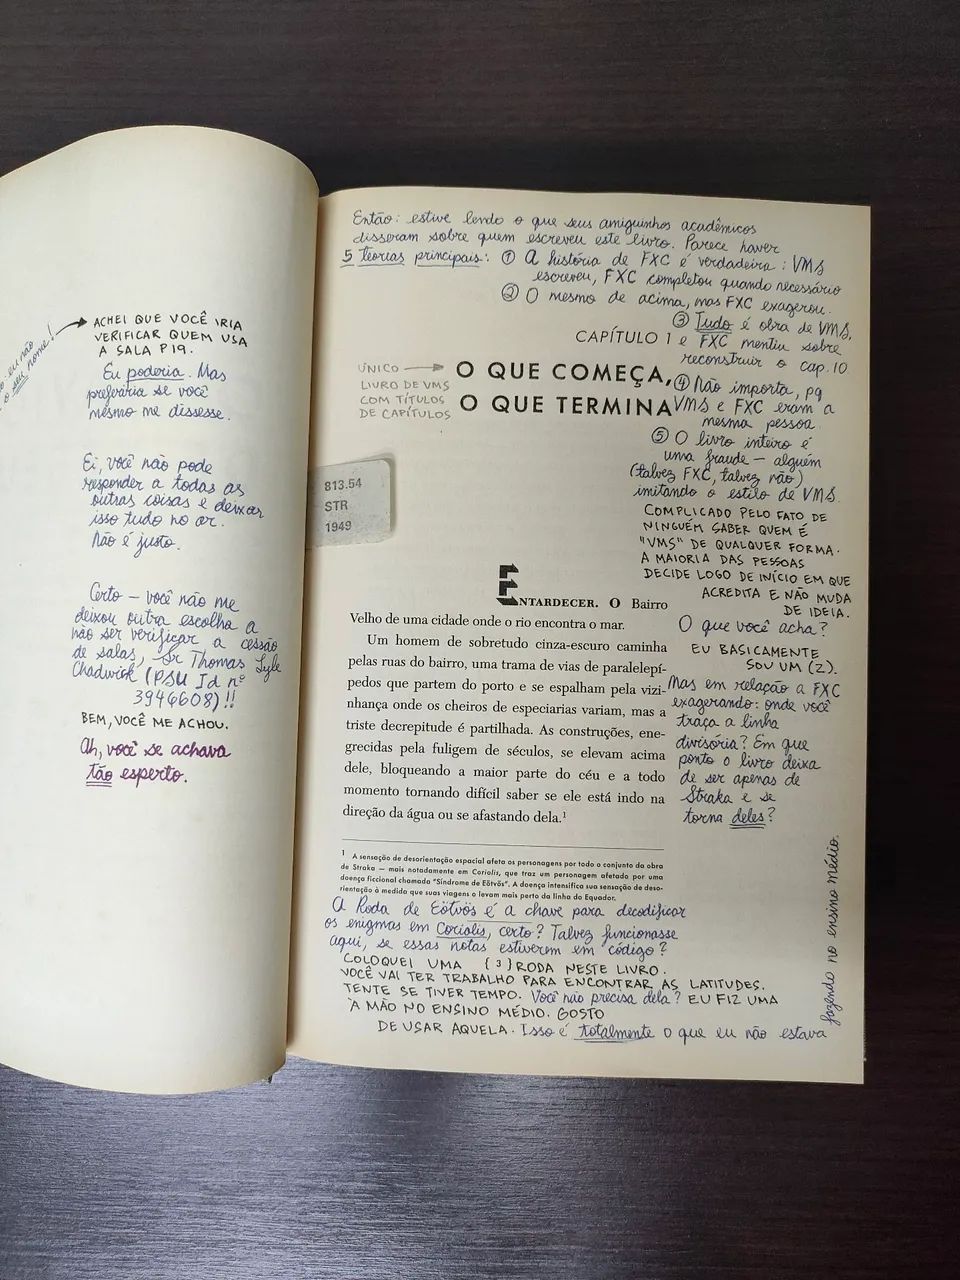 o eu não
o seu nome!
ACHEI QUE VOCÊ IRIA
VERIFICAR QUEM USA
A SALA P19.
Eu poderia. Mas
preferiria se você
mesmo me dissesse.
Ei, você não pode
responder a todas as
outras coisas e deixar
isso tudo no ar.
Não é justo.
Certo – você não me
deixou outra escolha a
não ser verificar a cessão
de salas, Sr Thomas Lyle
Chadwick (PSU Id nº
3946608)!!
BEM, VOCÊ ME ACHOU.
Ah, você se achava
tão esperto.
Então: estive lendo o que seus amiguinhos acadêmicos
disseram sobre quem escreveu este livro. Parece haver
5 teorias principais: ① A história de FXC é verdadeira: VMS
escreveu, FXC completou quando necessário
② O mesmo de acima, mas FXC exagerou.
③ Tudo é obra de VMS,
e FXC mentiu sobre
reconstruir o cap. 10
④ Não importa, pq
VMS e FXC eram a
mesma pessoa.
⑤ O livro inteiro é
uma fraude – alguém
(talvez FXC, talvez não)
imitando o estilo de VMS.
COMPLICADO PELO FATO DE
NINGUÉM SABER QUEM É
"VMS" DE QUALQUER FORMA.
A MAIORIA DAS PESSOAS
DECIDE LOGO DE INÍCIO EM QUE
ACREDITA E NÃO MUDA
DE IDEIA.
O que você acha?
EU BASICAMENTE
SOU UM (2).
Mas em relação a FXC
exagerando: onde você
traça a linha
divisória? Em que
ponto o livro deixa
de ser apenas de
Straka e se
torna deles?
CAPÍTULO 1
O QUE COMEÇA,
O QUE TERMINA
ÚNICO
LIVRO DE VMS
COM TÍTULOS
DE CAPÍTULOS
813.54
STR
1949
ENTARDECER. O Bairro
Velho de uma cidade onde o rio encontra o mar.
Um homem de sobretudo cinza-escuro caminha
pelas ruas do bairro, uma trama de vias de paralelepí-
pedos que partem do porto e se espalham pela vizi-
nhança onde os cheiros de especiarias variam, mas a
triste decrepitude é partilhada. As construções, ene-
grecidas pela fuligem de séculos, se elevam acima
dele, bloqueando a maior parte do céu e a todo
momento tornando difícil saber se ele está indo na
direção da água ou se afastando dela.¹
1 A sensação de desorientação espacial afeta os personagens por todo o conjunto da obra
de Straka — mais notadamente em Coriolis, que traz um personagem afetado por uma
doença ficcional chamada "Síndrome de Eötvös". A doença intensifica sua sensação de deso-
rientação à medida que suas viagens o levam mais perto da linha do Equador.
A Roda de Eötvös é a chave para decodificar
os enigmas em Coriolis, certo? Talvez funcionasse
aqui, se essas notas estiverem em código?
COLOQUEI UMA {3} RODA NESTE LIVRO.
VOCÊ VAI TER TRABALHO PARA ENCONTRAR AS LATITUDES.
TENTE SE TIVER TEMPO. Você não precisa dela? EU FIZ UMA
À MÃO NO ENSINO MÉDIO. GOSTO
DE USAR AQUELA. Isso é totalmente o que eu não estava
fazendo no ensino médio.